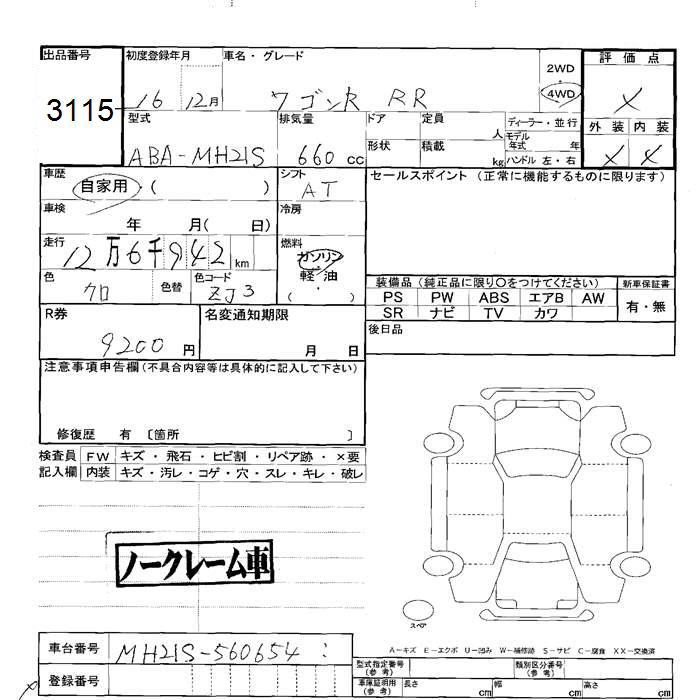 出品番号 初度登録年月 車名・グレード 2WD 4WD 評価点
3115 16 12月 ワゴンR RR X
型式 排気量 ドア 定員 人 ディーラー・並行 外装 内装
ABA-MH21S 660 cc 形状 積載 kg モデル年式 年 ハンドル 左・右 X X
車歴 自家用・( ) シフト AT セールスポイント (正常に機能するものに限ります)
車検 年 月( 日) 冷房
走行 12万6千942 km 燃料 ガソリン 軽・油 ( )
色 クロ 色替 色コード ZJ3
装備品 (純正品に限り○をつけてください) 新車保証書
PS PW ABS エアB AW 有・無
SR ナビ TV カワ
R券 9200 円 名変通知期限 月 日 後日品
注意事項申告欄 (不具合内容等は具体的に記入して下さい)
修復歴 有 〔箇所 〕
検査員 FW キズ・飛石・ヒビ割・リペア跡・×要
記入欄 内装 キズ・汚レ・コゲ・穴・スレ・キレ・破レ
ノークレーム車
スペア
A−キズ E−エクボ U−凹み W−補修跡 S−サビ C−腐食 XX−交換済
車台番号 MH21S-560654 : 型式指定番号 (参考) 類別区分番号 (参考)
登録番号 車庫証明用 (参考) 長さ cm 幅 cm 高さ cm